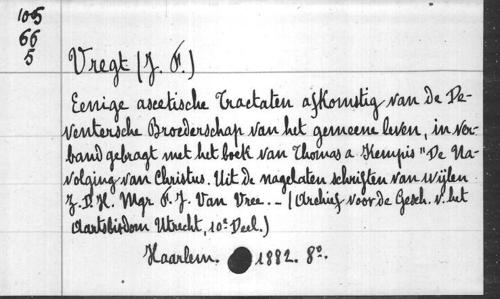 105
66
5
Vregt (J. F.)
Eenige ascetische Tractaten afkomstig van de De-
ventersche Broederschap van het gemeene leven, in ver-
band gebragt met het boek van Thomas a Kempis "De Na-
volging van Christus. Uit de nagelaten schriften van wijlen
Z. D. H. Mgr F. J. Van Vree. – (Archief voor de Gesch. v. het
Aartsbisdom Utrecht, 10e Deel.)
Haarlem. 1882. 8o.